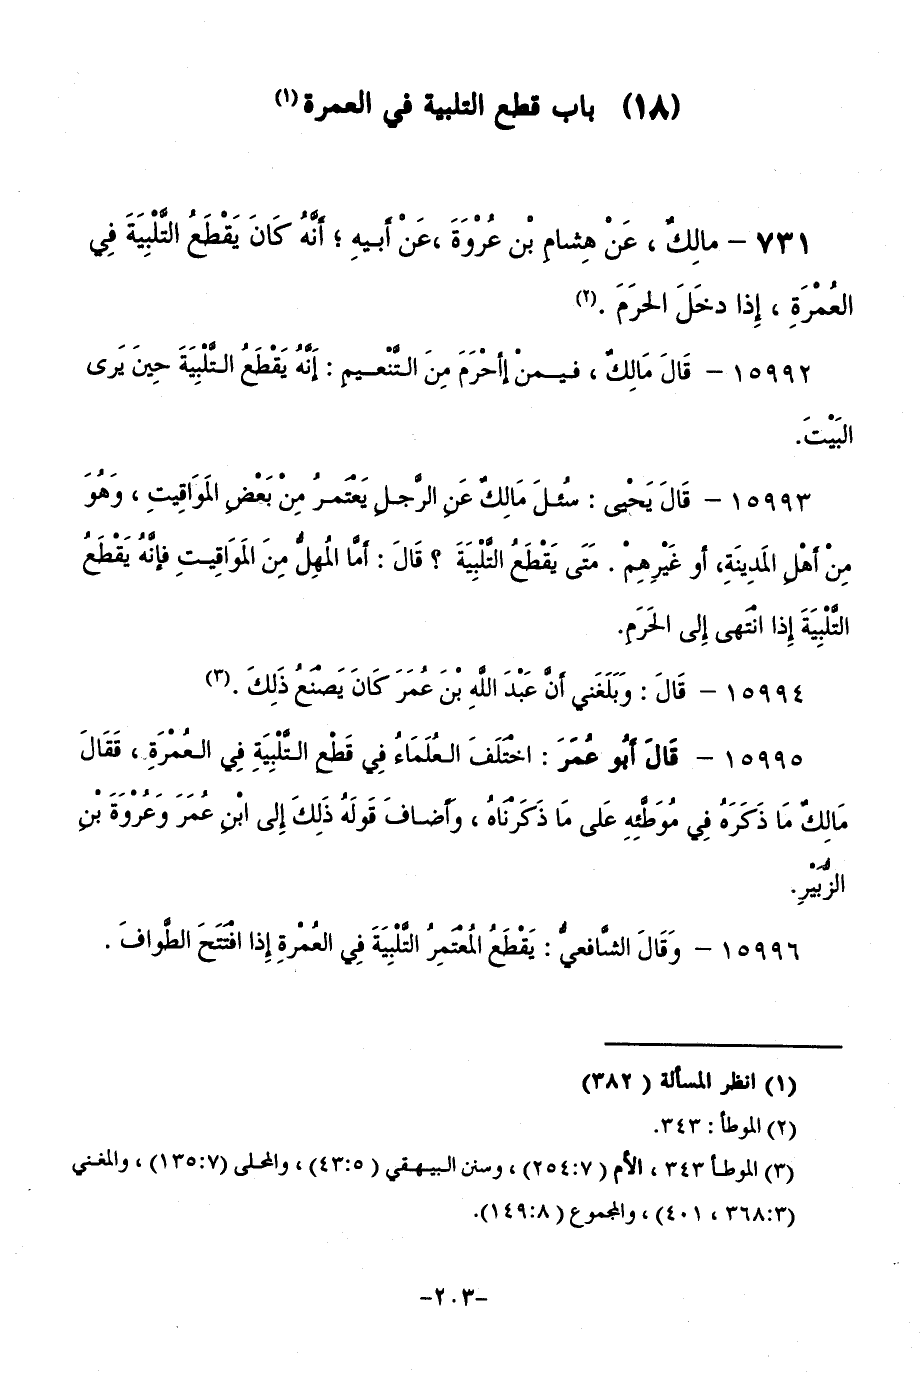 (١٨) باب قطع التلبية في العمرة(١)
٧٣١ – مالِكٌ ، عَنْ هِشامِ بْنِ عُرْوَةَ ،عَنْ أَبـيهِ ؛ أَنَّهُ كَانَ يَقْطَعُ التَّلْبِيَةَ فِي
العُمْرَةِ ، إِذا دخَلَ الحرَمَ .(٢)
١٥٩٩٢ – قَالَ مَالِكٌ ، فـيـمنْ إأحْرَمَ مِنَ الـتَّنْعـيمِ : إِنَّهُ يَقْطَعُ الـتَّلْبِيَةَ حِينَ يَرى
البَيْتَ.
١٥٩٩٣ – قَالَ يَحْيى : سُئـلَ مَالِكٌ عَنِ الرَّجـلِ يَعْتَمـرُ مِنْ بَعْضِ المَوَاقِيتِ ، وَهُوَ
مِنْ أَهْلِ المَدِينَةِ، أو غَيْرِهِمْ . مَتَى يَقْطَعُ التَّلْبِيَةَ ؟ قَالَ : أَمَّا المُهِلُّ مِنَ المَوَاقِيـتِ فإنَّهُ يَقْطَعُ
التَّلْبِيَةَ إِذا انْتَهى إِلى الحَرَمِ.
١٥٩٩٤ – قَالَ : وَبَلَغَني أَنَّ عَبْدَ اللَّهِ بْنَ عُمَرَ كَانَ يَصْنَعُ ذَلِكَ .(٣)
١٥٩٩٥ – قَالَ أَبُو عُمَرَ : اخْتَلَفَ الـعُلَمَاءُ فِي قَطْعِ الـتَّلْبِيَةِ فِي الـعُمْرَةِ ، فَقَالَ
مَالِكٌ مَا ذَكَرَهُ فِي مُوَطَّئِهِ عَلى مَا ذَكَرْنَاهُ ، وأَضـافَ قَولَهُ ذَلِكَ إِلى ابْنِ عُمَرَ وَعُرْوَةَ بْنِ
الزُّبَيْرِ.
١٥٩٩٦ – وَقَالَ الشَّافعيُّ : يَقْطَعُ المُعْتَمِرُ التَّلْبِيَةَ فِي العُمْرةِ إِذا افْتَتَحَ الطَّوافَ .
(١) انظر المسألة ( ٣٨٢)
(٢) الموطأ : ٣٤٣.
(٣) الموطـأ ٣٤٣ ، الأم ( ٢٥٤:٧) ، وسنن الـبيـهـقي ( ٤٣:٥) ، والمحلى (١٣٥:٧) ، والمغـني
(٣٦٨:٣ ، ٤٠١) ، والمجموع ( ١٤٩:٨).
–٢٠٣–